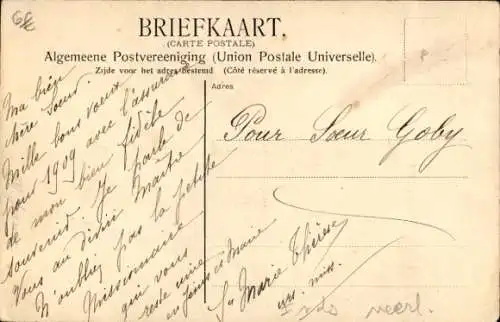 BRIEFKAART.
(CARTE POSTALE)
Algemeene Postvereeniging (Union Postale Universelle).
Zijde voor het adres bestemd (Côté réservé à l'adresse).
Adres
Ma bien
chère Soeur.
Mille bons vœux
pour 1909 avec l'assurance
de mon bien fidèle
souvenir. Je parle de
Vous au divin Maître
N'oubliez pas la petite
Missionnaire
qui vous
reste unie
en Jésus et Marie
Sr Marie Thérèse
urs. miss.
Pour Sœur Goby
Ind. neerl.